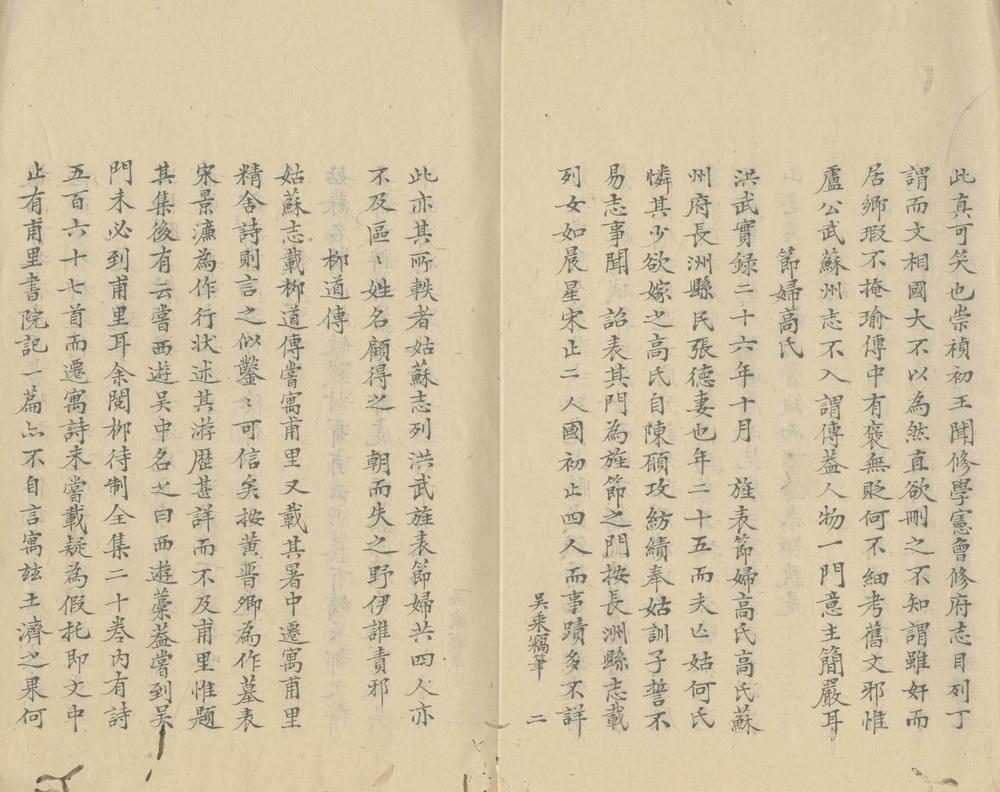 此真可笑也崇禎初王聞修學憲會修府志目列丁
謂而文相國大不以為然直欲刪之不知謂雖奸而
居鄉瑕不掩瑜傳中有褒無貶何不細考舊文邪惟
盧公武蘇州志不入謂傳蓋人物一門意主簡嚴耳
節婦高氏
洪武實録二十六年十月 旌表節婦高氏高氏蘇
州府長洲縣民張德妻也年二十五而夫亾姑何氏
憐其少欲嫁之高氏自陳願攻紡績奉姑訓子誓不
易志事聞 詔表其門為旌節之門按長洲縣志載
列女如晨星宋止二人國初止四人而事蹟多不詳
吳乘竊筆 二
此亦其所軼者姑蘇志列洪武旌表節婦共四人亦
不及區〻姓名顧得之朝而失之野伊誰責邪
柳道傳
姑蘇志載柳道傳嘗寓甫里又載其暑中遷寓甫里
精舍詩則言之似鑿〻可信矣按黃晉卿為作墓表
宋景濂為作行狀述其游歷甚詳而不及甫里惟題
其集後有云嘗西遊吳中名之曰西遊藁蓋嘗到吳
門未必到甫里耳余閱柳待制全集二十卷內有詩
五百六十七首而遷寓詩未嘗載疑為假托即文中
止有甫里書院記一篇亦不自言寓玆土濟之果何